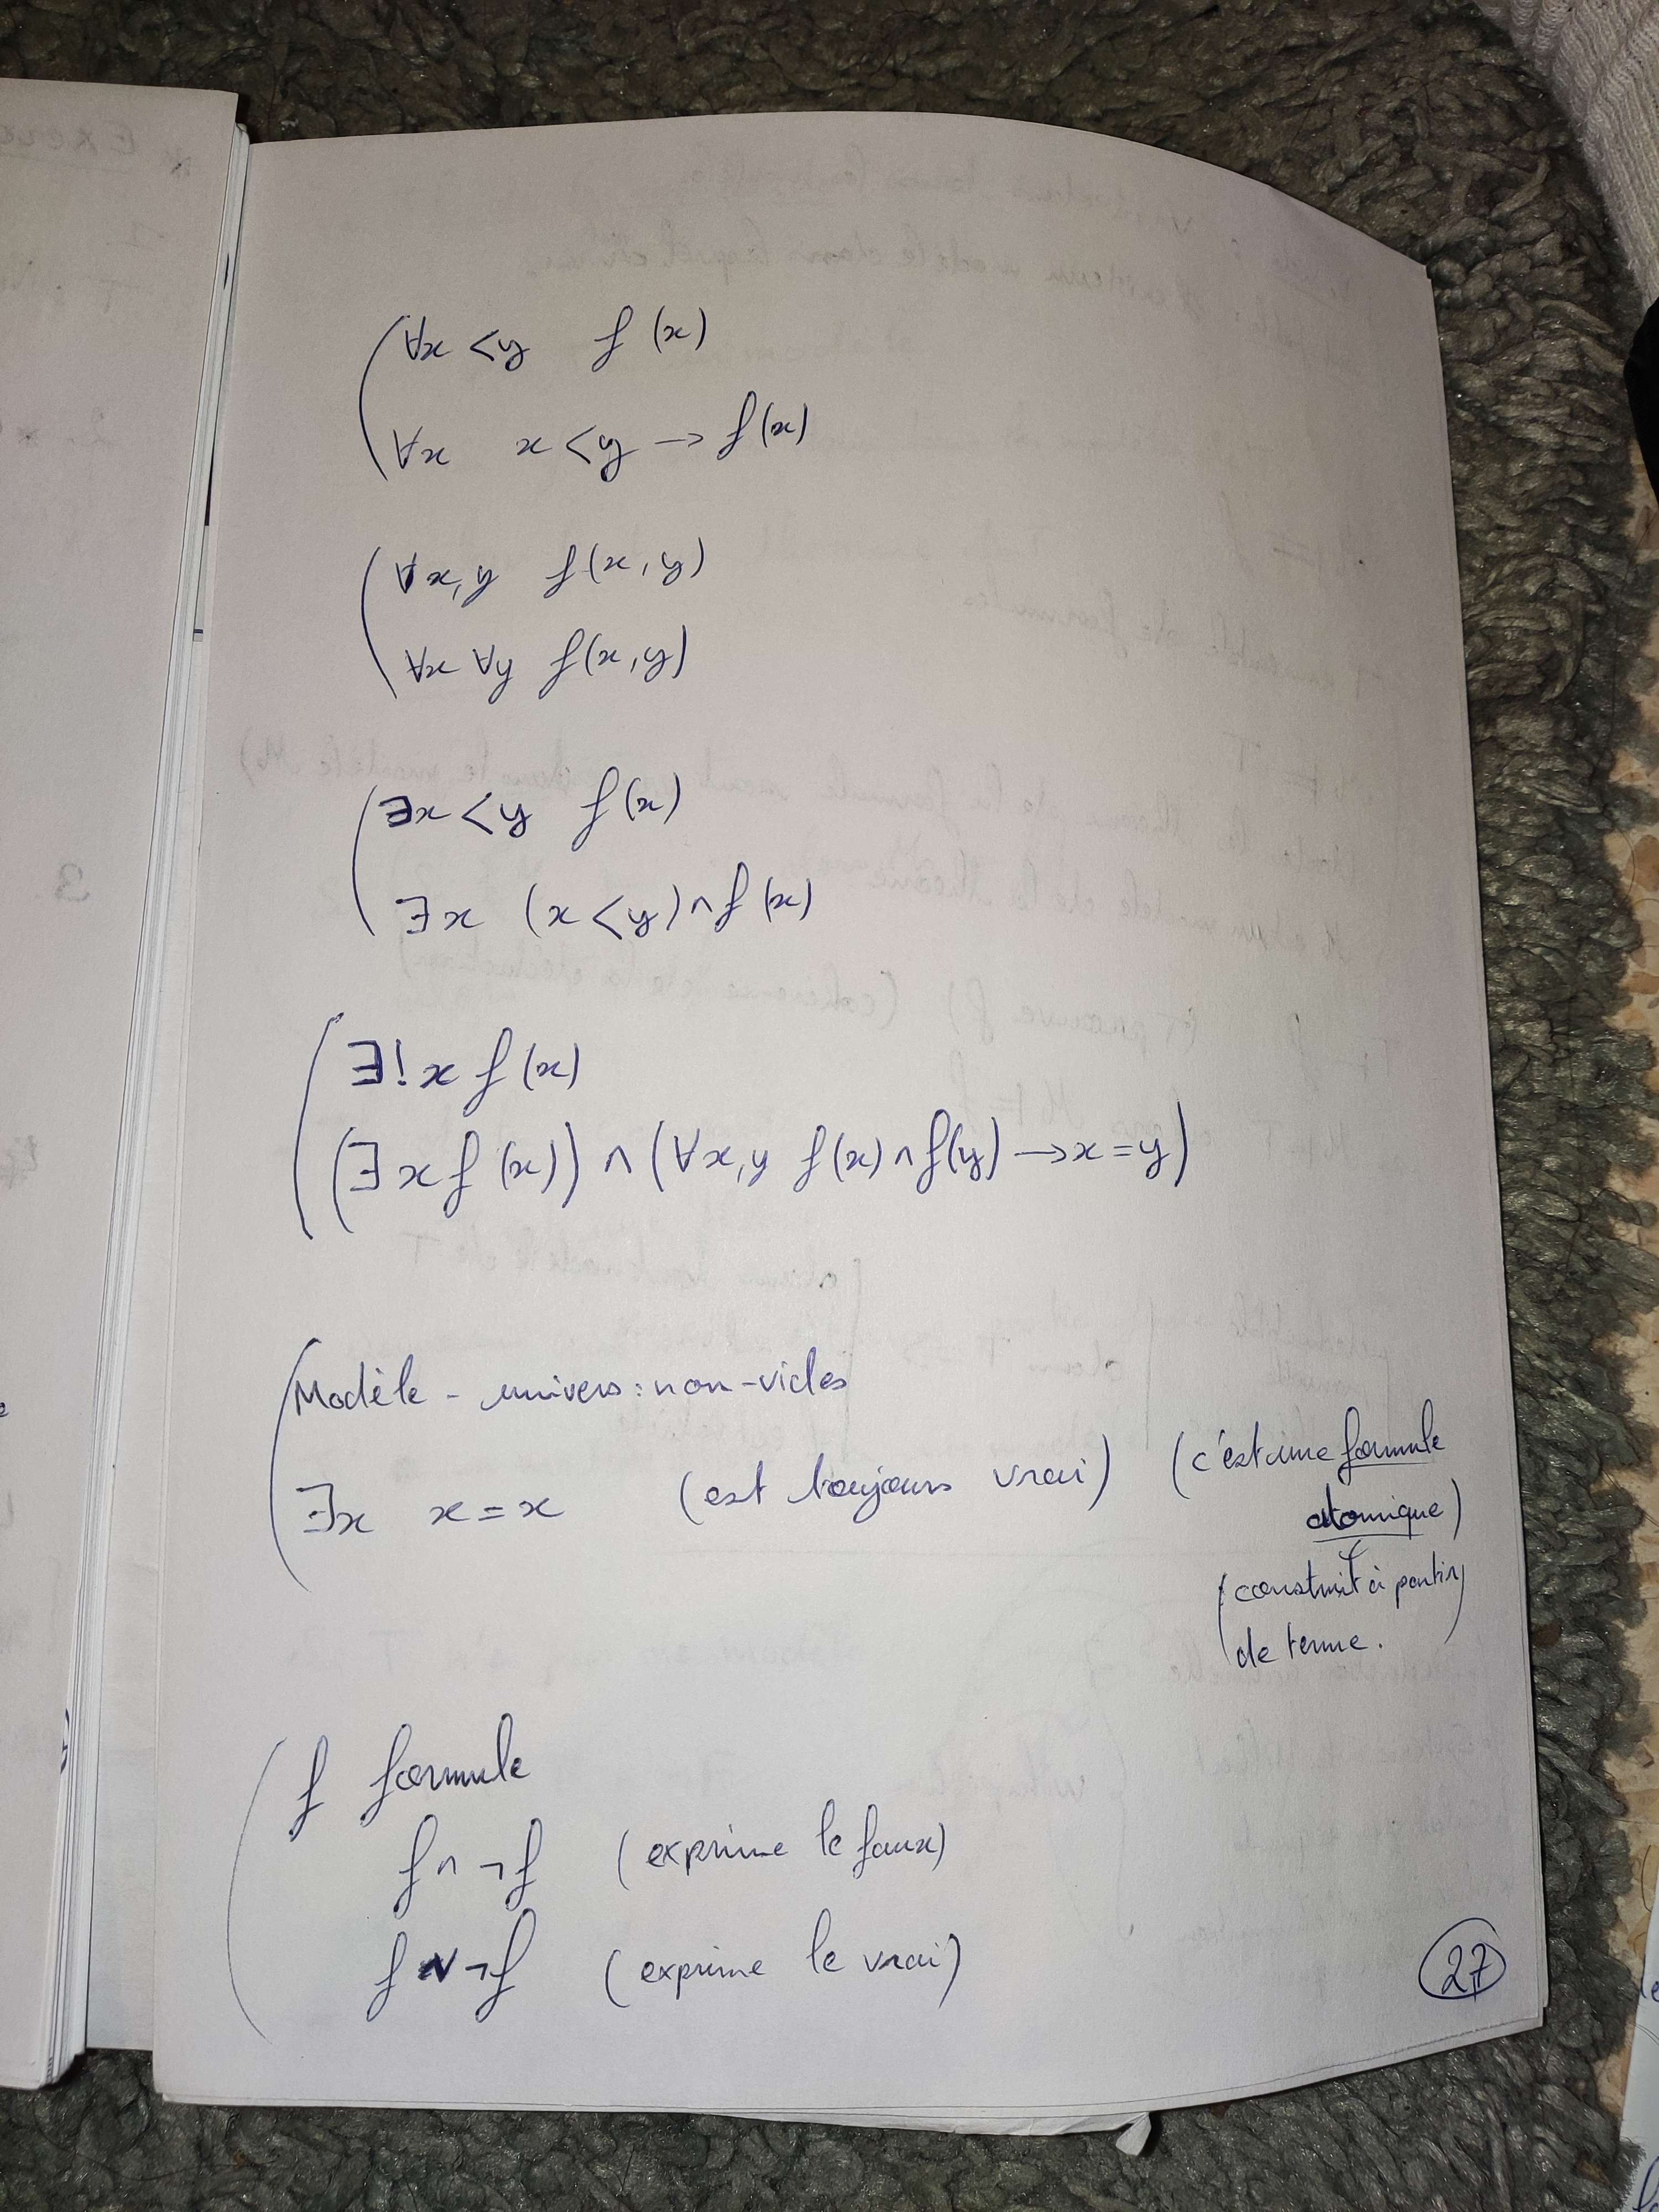 ∀x < y f(x)
∀x x < y → f(x)
∀x,y f(x,y)
∀x ∀y f(x,y)
∃x < y f(x)
∃x (x < y) ∧ f(x)
∃!x f(x)
(∃x f(x)) ∧ (∀x,y f(x) ∧ f(y) → x = y)
Modèle - univers : non-vides
∃x x = x (est toujours vrai) (c'est une formule
atomique)
(construit à partir
de terme.)
f formule
f ∧ ¬f (exprime le faux)
f ∨ ¬f (exprime le vrai)
27